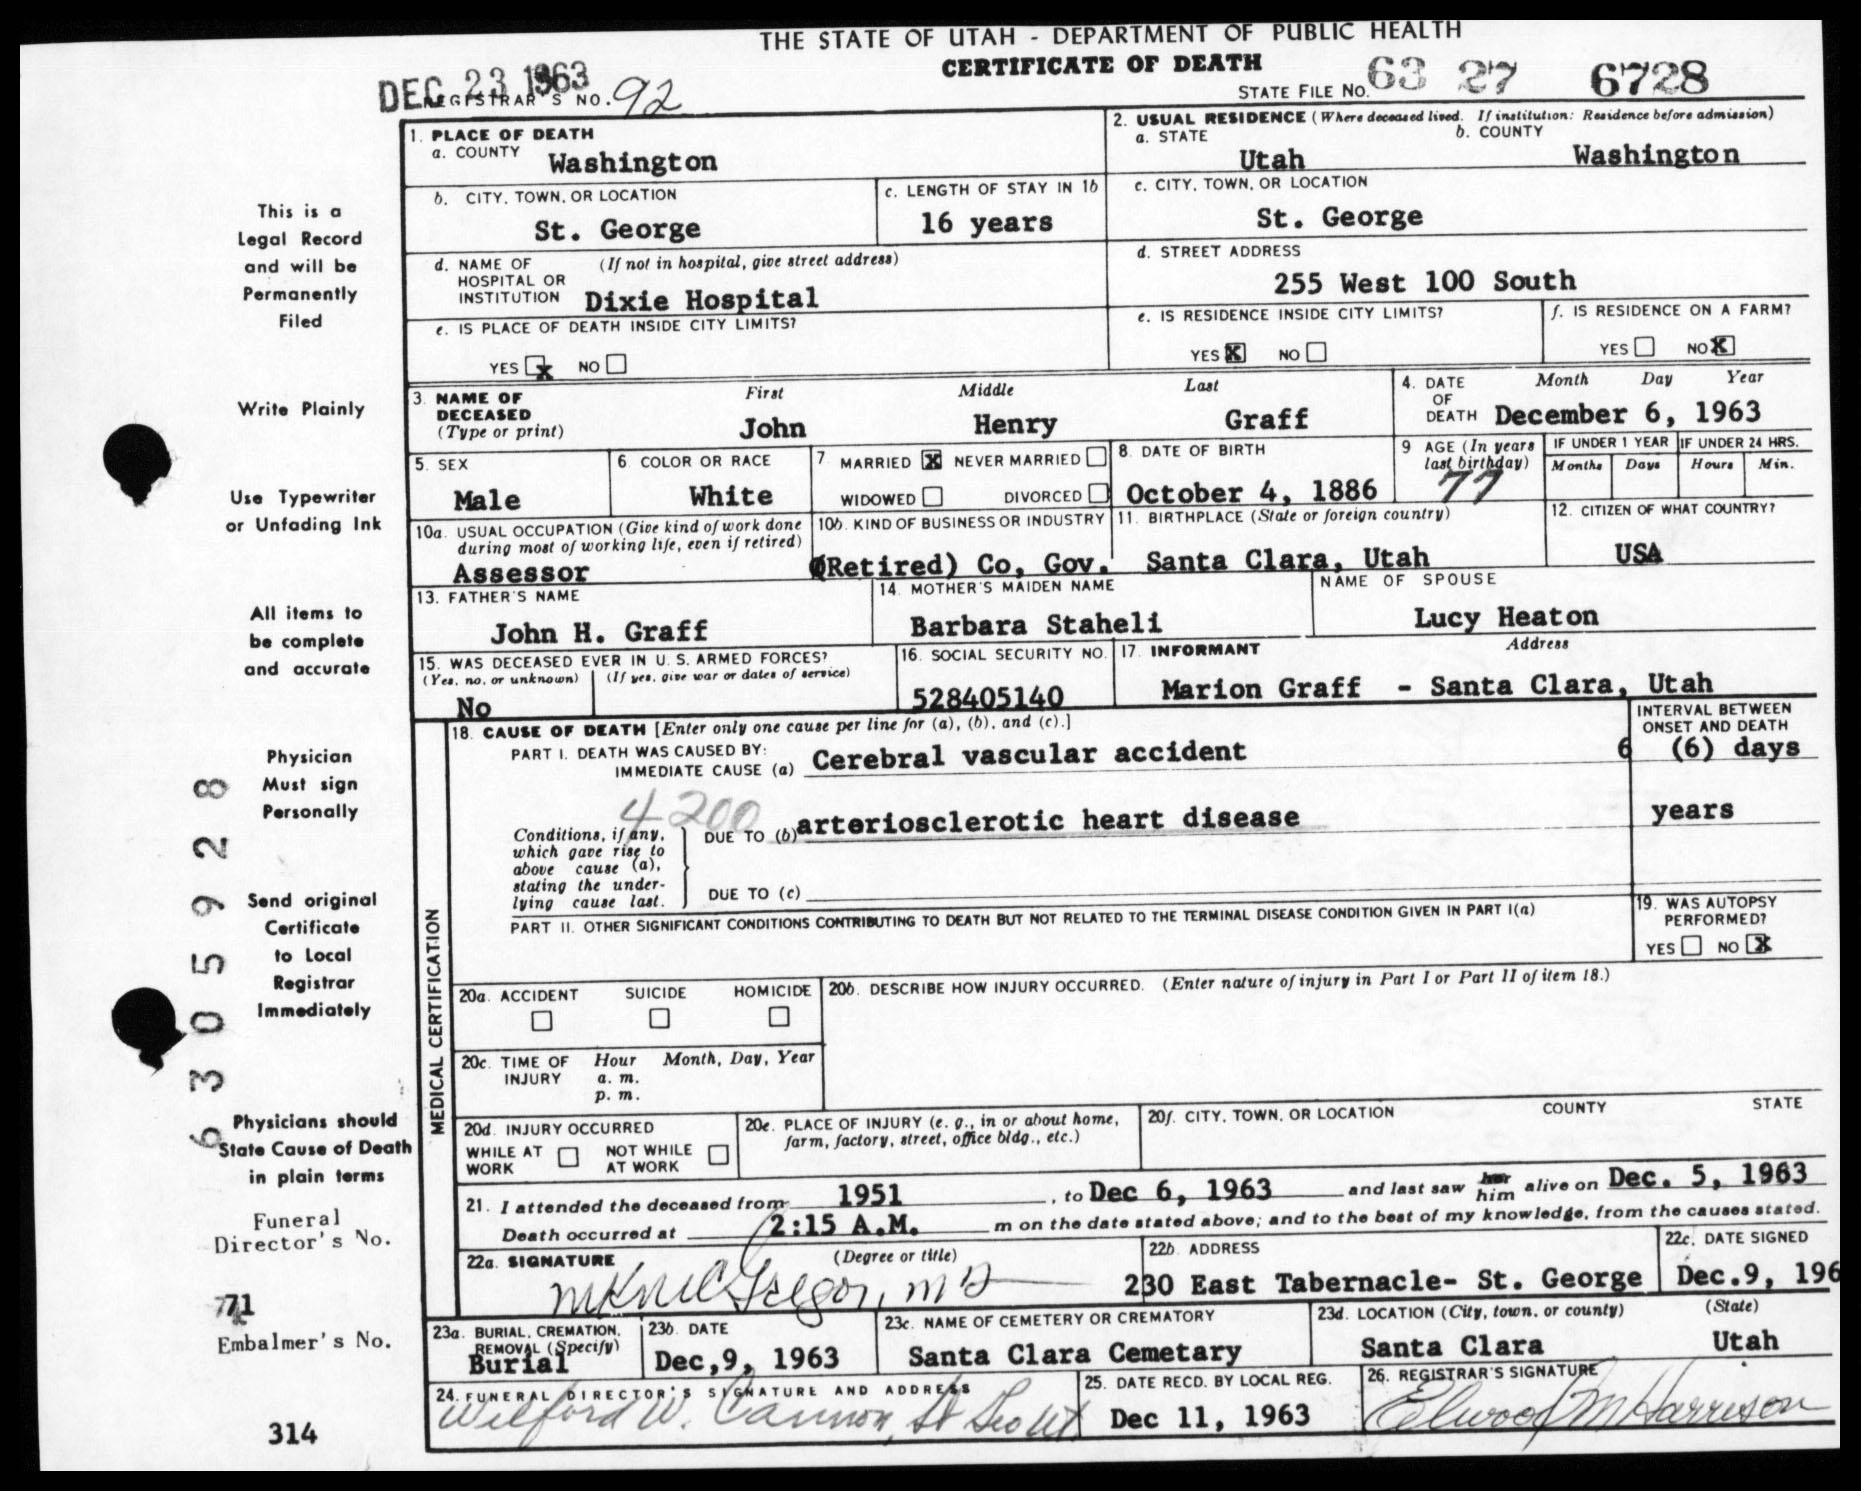 THE STATE OF UTAH - DEPARTMENT OF PUBLIC HEALTH
CERTIFICATE OF DEATH
DEC 23 1963
REGISTRAR'S NO. 92
STATE FILE NO. 63 27 6728
1. PLACE OF DEATH
a. COUNTY Washington
2. USUAL RESIDENCE (Where deceased lived. If institution: Residence before admission)
a. STATE Utah
b. COUNTY Washington
b. CITY, TOWN, OR LOCATION St. George
c. LENGTH OF STAY IN 1b 16 years
c. CITY, TOWN, OR LOCATION St. George
d. NAME OF HOSPITAL OR INSTITUTION (If not in hospital, give street address) Dixie Hospital
d. STREET ADDRESS 255 West 100 South
e. IS PLACE OF DEATH INSIDE CITY LIMITS?
YES x NO
e. IS RESIDENCE INSIDE CITY LIMITS?
YES X NO
f. IS RESIDENCE ON A FARM?
YES NO X
3. NAME OF DECEASED (Type or print)
First Middle Last
John Henry Graff
4. DATE OF DEATH Month Day Year
December 6, 1963
5. SEX Male
6. COLOR OR RACE White
7. MARRIED X NEVER MARRIED
WIDOWED DIVORCED
8. DATE OF BIRTH October 4, 1886
9 AGE (In years last birthday) 77
IF UNDER 1 YEAR Months Days
IF UNDER 24 HRS. Hours Min.
10a. USUAL OCCUPATION (Give kind of work done during most of working life, even if retired) Assessor
10b. KIND OF BUSINESS OR INDUSTRY (Retired) Co, Gov.
11. BIRTHPLACE (State or foreign country) Santa Clara, Utah
12. CITIZEN OF WHAT COUNTRY? USA
13. FATHER'S NAME John H. Graff
14. MOTHER'S MAIDEN NAME Barbara Staheli
NAME OF SPOUSE Lucy Heaton
15. WAS DECEASED EVER IN U.S. ARMED FORCES?
(Yes, no, or unknown) (If yes, give war or dates of service)
No
16. SOCIAL SECURITY NO. 528405140
17. INFORMANT Address
Marion Graff - Santa Clara, Utah
MEDICAL CERTIFICATION
18. CAUSE OF DEATH [Enter only one cause per line for (a), (b), and (c).]
INTERVAL BETWEEN ONSET AND DEATH
PART I. DEATH WAS CAUSED BY:
IMMEDIATE CAUSE (a) Cerebral vascular accident 6 (6) days
4200
Conditions, if any, which gave rise to above cause (a), stating the underlying cause last.
DUE TO (b) arteriosclerotic heart disease years
DUE TO (c)
PART II. OTHER SIGNIFICANT CONDITIONS CONTRIBUTING TO DEATH BUT NOT RELATED TO THE TERMINAL DISEASE CONDITION GIVEN IN PART I(a)
19. WAS AUTOPSY PERFORMED?
YES NO X
20a. ACCIDENT SUICIDE HOMICIDE
20b. DESCRIBE HOW INJURY OCCURRED. (Enter nature of injury in Part I or Part II of item 18.)
20c. TIME OF INJURY Hour Month, Day, Year
a. m.
p. m.
20d. INJURY OCCURRED
WHILE AT WORK NOT WHILE AT WORK
20e. PLACE OF INJURY (e. g., in or about home, farm, factory, street, office bldg., etc.)
20f. CITY, TOWN, OR LOCATION COUNTY STATE
21. I attended the deceased from 1951, to Dec 6, 1963 and last saw her him alive on Dec. 5, 1963
Death occurred at 2:15 A.M. m on the date stated above; and to the best of my knowledge, from the causes stated.
22a. SIGNATURE (Degree or title)
McGregor, MD
22b. ADDRESS 230 East Tabernacle- St. George
22c. DATE SIGNED Dec.9, 196
23a. BURIAL, CREMATION, REMOVAL (Specify) Burial
23b. DATE Dec,9, 1963
23c. NAME OF CEMETERY OR CREMATORY Santa Clara Cemetary
23d. LOCATION (City, town, or county) (State)
Santa Clara Utah
24. FUNERAL DIRECTOR'S SIGNATURE AND ADDRESS
Wilford W. Cannon, St Geo Ut
25. DATE RECD. BY LOCAL REG. Dec 11, 1963
26. REGISTRAR'S SIGNATURE
Elwood M Harrison
This is a
Legal Record
and will be
Permanently
Filed
Write Plainly
Use Typewriter
or Unfading Ink
All items to
be complete
and accurate
Physician
Must sign
Personally
Send original
Certificate
to Local
Registrar
Immediately
Physicians should
State Cause of Death
in plain terms
Funeral
Director's No.
71
Embalmer's No.
314
6 3 0 5 9 2 8